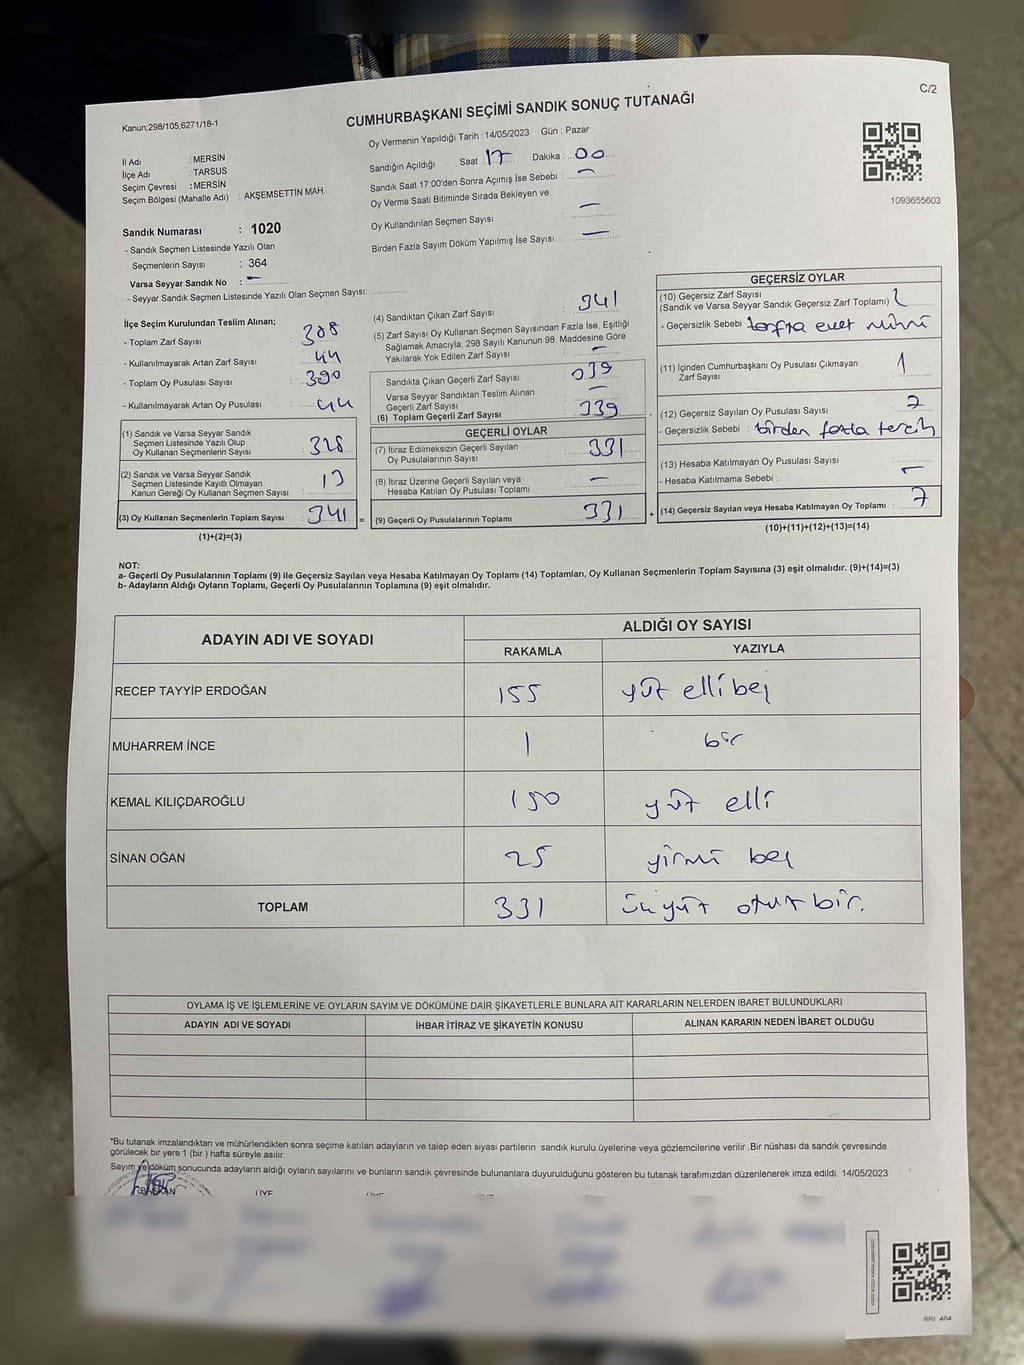 C/2
Kanun;298/105,6271/18-1
CUMHURBAŞKANI SEÇİMİ SANDIK SONUÇ TUTANAĞI
Oy Vermenin Yapıldığı Tarih : 14/05/2023 Gün : Pazar
İl Adı : MERSİN
İlçe Adı : TARSUS
Seçim Çevresi : MERSİN
Seçim Bölgesi (Mahalle Adı) : AKŞEMSETTİN MAH.
Sandığın Açıldığı Saat 17 Dakika : 00
Sandık Saat 17:00'den Sonra Açımış İse Sebebi : —
Oy Verme Saati Bitiminde Sırada Bekleyen ve
Oy Kullandırılan Seçmen Sayısı : —
Birden Fazla Sayım Döküm Yapılmış İse Sayısı : —
1093655603
Sandık Numarası : 1020
- Sandık Seçmen Listesinde Yazılı Olan
Seçmenlerin Sayısı : 364
Varsa Seyyar Sandık No : —
- Seyyar Sandık Seçmen Listesinde Yazılı Olan Seçmen Sayısı:
İlçe Seçim Kurulundan Teslim Alınan;
- Toplam Zarf Sayısı :
- Kullanılmayarak Artan Zarf Sayısı : 44
- Toplam Oy Pusulası Sayısı : 390
- Kullanılmayarak Artan Oy Pusulası : 44
(1) Sandık ve Varsa Seyyar Sandık
Seçmen Listesinde Yazılı Olup
Oy Kullanan Seçmenlerin Sayısı : 328
(2) Sandık ve Varsa Seyyar Sandık
Seçmen Listesinde Kayıtlı Olmayan
Kanun Gereği Oy Kullanan Seçmen Sayısı : 13
(3) Oy Kullanan Seçmenlerin Toplam Sayısı : 341 =
(1)+(2)=(3)
(4) Sandıktan Çıkan Zarf Sayısı : 341
(5) Zarf Sayısı Oy Kullanan Seçmen Sayısından Fazla İse, Eşitliği
Sağlamak Amacıyla; 298 Sayılı Kanunun 98. Maddesine Göre
Yakılarak Yok Edilen Zarf Sayısı : —
Sandıkta Çıkan Geçerli Zarf Sayısı : 339
Varsa Seyyar Sandıktan Teslim Alınan
Geçerli Zarf Sayısı : —
(6) Toplam Geçerli Zarf Sayısı : 339
GEÇERLİ OYLAR
(7) İtiraz Edilmeksizin Geçerli Sayılan
Oy Pusulalarının Sayısı : 331
(8) İtiraz Üzerine Geçerli Sayılan veya
Hesaba Katılan Oy Pusulası Toplamı : —
(9) Geçerli Oy Pusulalarının Toplamı : 331 +
GEÇERSİZ OYLAR
(10) Geçersiz Zarf Sayısı
(Sandık ve Varsa Seyyar Sandık Geçersiz Zarf Toplamı) :
- Geçersizlik Sebebi : zarfta evet mührü
(11) İçinden Cumhurbaşkanı Oy Pusulası Çıkmayan
Zarf Sayısı : 1
(12) Geçersiz Sayılan Oy Pusulası Sayısı : 7
- Geçersizlik Sebebi : birden fazla tercih
(13) Hesaba Katılmayan Oy Pusulası Sayısı : —
- Hesaba Katılmama Sebebi :
(14) Geçersiz Sayılan veya Hesaba Katılmayan Oy Toplamı : 7
(10)+(11)+(12)+(13)=(14)
NOT:
a- Geçerli Oy Pusulalarının Toplamı (9) ile Geçersiz Sayılan veya Hesaba Katılmayan Oy Toplamı (14) Toplamları, Oy Kullanan Seçmenlerin Toplam Sayısına (3) eşit olmalıdır. (9)+(14)=(3)
b- Adayların Aldığı Oyların Toplamı, Geçerli Oy Pusulalarının Toplamına (9) eşit olmalıdır.
ADAYIN ADI VE SOYADI
ALDIĞI OY SAYISI
RAKAMLA YAZIYLA
RECEP TAYYİP ERDOĞAN 155 yüz elli beş
MUHARREM İNCE 1 bir
KEMAL KILIÇDAROĞLU 150 yüz elli
SİNAN OĞAN 25 yirmi beş
TOPLAM 331 üç yüz otuz bir.
OYLAMA İŞ VE İŞLEMLERİNE VE OYLARIN SAYIM VE DÖKÜMÜNE DAİR ŞİKAYETLERLE BUNLARA AİT KARARLARIN NELERDEN İBARET BULUNDUKLARI
ADAYIN ADI VE SOYADI İHBAR İTİRAZ VE ŞİKAYETİN KONUSU ALINAN KARARIN NEDEN İBARET OLDUĞU
*Bu tutanak imzalandıktan ve mühürlendikten sonra seçime katılan adayların ve talep eden siyasi partilerin sandık kurulu üyelerine veya gözlemcilerine verilir .Bir nüshası da sandık çevresinde
görülecek bir yere 1 (bir ) hafta süreyle asılır.
Sayım ve döküm sonucunda adayların aldığı oyların sayılarını ve bunların sandık çevresinde bulunanlara duyurulduğunu gösteren bu tutanak tarafımızdan düzenlenerek imza edildi. 14/05/2023
BAŞKAN ÜYE ÜYE